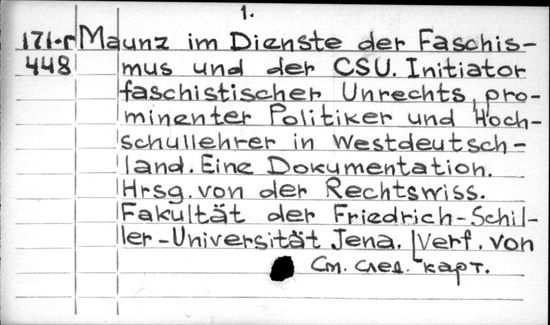 1.
171-г Maunz im Dienste der Faschis-
448 mus und der CSU. Initiator
faschistischer Unrechts, pro-
minenter Politiker und Hoch-
schullehrer in Westdeutsch-
land. Eine Dokumentation.
Hrsg. von der Rechtswiss.
Fakultät der Friedrich-Schil-
ler-Universität Jena. [Verf. von
См. след. карт.